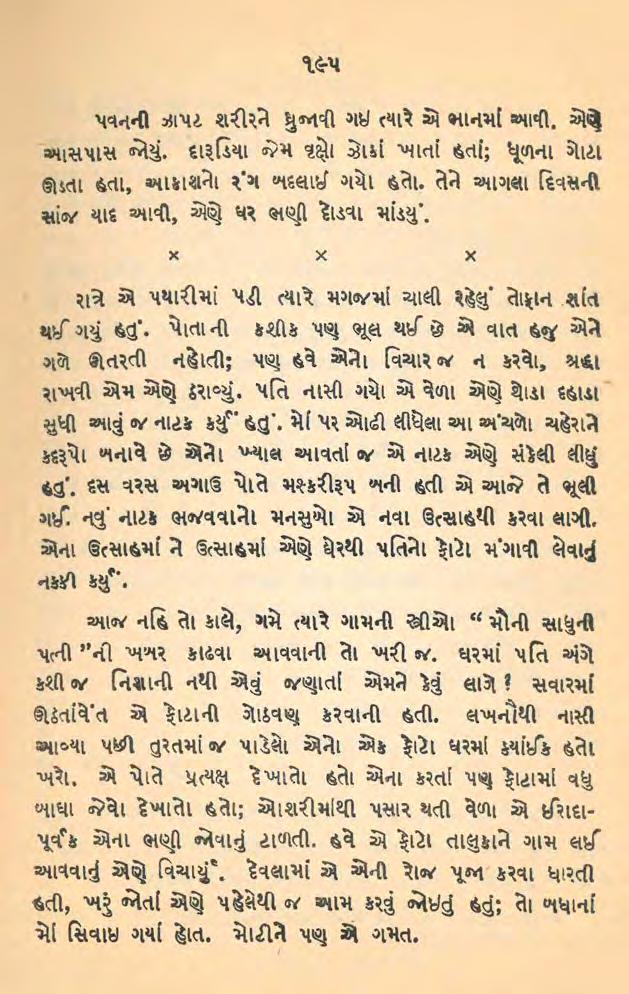 ૧૯૫
પવનની ઝાપટ શરીરને ધ્રુજાવી ગઇ ત્યારે એ ભાનમાં આવી. એણે
આસપાસ જોયું. દારૂડિયા જેમ વૃક્ષો ઝોકાં ખાતાં હતાં; ધૂળના ગોટા
ઊડતા હતા, આકાશનો રંગ બદલાઈ ગયો હતો. તેને આગલા દિવસની
સાંજ યાદ આવી, એણે ઘર ભણી દોડવા માંડયું.
× × ×
રાત્રે એ પથારીમાં પડી ત્યારે મગજમાં ચાલી રહેલું તોફાન શાંત
થઈ ગયું હતું. પોતાની કશીક પણ ભૂલ થઈ છે એ વાત હજુ એને
ગળે ઊતરતી નહોતી; પણ હવે એનો વિચાર જ ન કરવો, શ્રદ્ધા
રાખવી એમ એણે ઠરાવ્યું. પતિ નાસી ગયો એ વેળા એણે થોડા દહાડા
સુધી આવું જ નાટક કર્યું હતું. મોં પર ઓઢી લીધેલા આ અંચળો ચહેરાને
કદરૂપો બનાવે છે એનો ખ્યાલ આવતાં જ એ નાટક એણે સંકેલી લીધું
હતું. દસ વરસ અગાઉ પોતે મશ્કરીરૂપ બની હતી એ આજે તે ભૂલી
ગઈ. નવું નાટક ભજવવાનો મનસુબો એ નવા ઉત્સાહથી કરવા લાગી.
એના ઉત્સાહમાં ને ઉત્સાહમાં એણે ઘેરથી પતિનો ફોટો મંગાવી લેવાનું
નકકી કર્યું.
આજ નહિ તો કાલે, ગમે ત્યારે ગામની સ્ત્રીઓ “ મૌની સાધુની
પત્ની ”ની ખબર કાઢવા આવવાની તો ખરી જ. ઘરમાં પતિ અંગે
કશી જ નિશાની નથી એવું જણાતાં એમને કેવું લાગે ? સવારમાં
ઊઠતાંવેંત એ ફોટાની ગોઠવણ કરવાની હતી. લખનૌથી નાસી
આવ્યા પછી તુરતમાં જ પાડેલો એનો એક ફોટો ઘરમાં કયાંઈક હતો
ખરો. એ પોતે પ્રત્યક્ષ દેખાતો હતો એના કરતાં પણ ફોટામાં વધુ
બાઘા જેવો દેખાતો હતો; ઓશરીમાંથી પસાર થતી વેળા એ ઈરાદા-
પૂર્વક એના ભણી જોવાનું ટાળતી. હવે એ ફોટો તાલુકાને ગામ લઈ
આવવાનું એણે વિચાર્યું. દેવલામાં એ એની રોજ પૂજા કરવા ધારતી
હતી, ખરું જોતાં એણે પહેલેથી જ આમ કરવું જોઇતું હતું; તો બધાનાં
મોં સિવાઇ ગયાં હોત. મોટીને પણ એ ગમત.